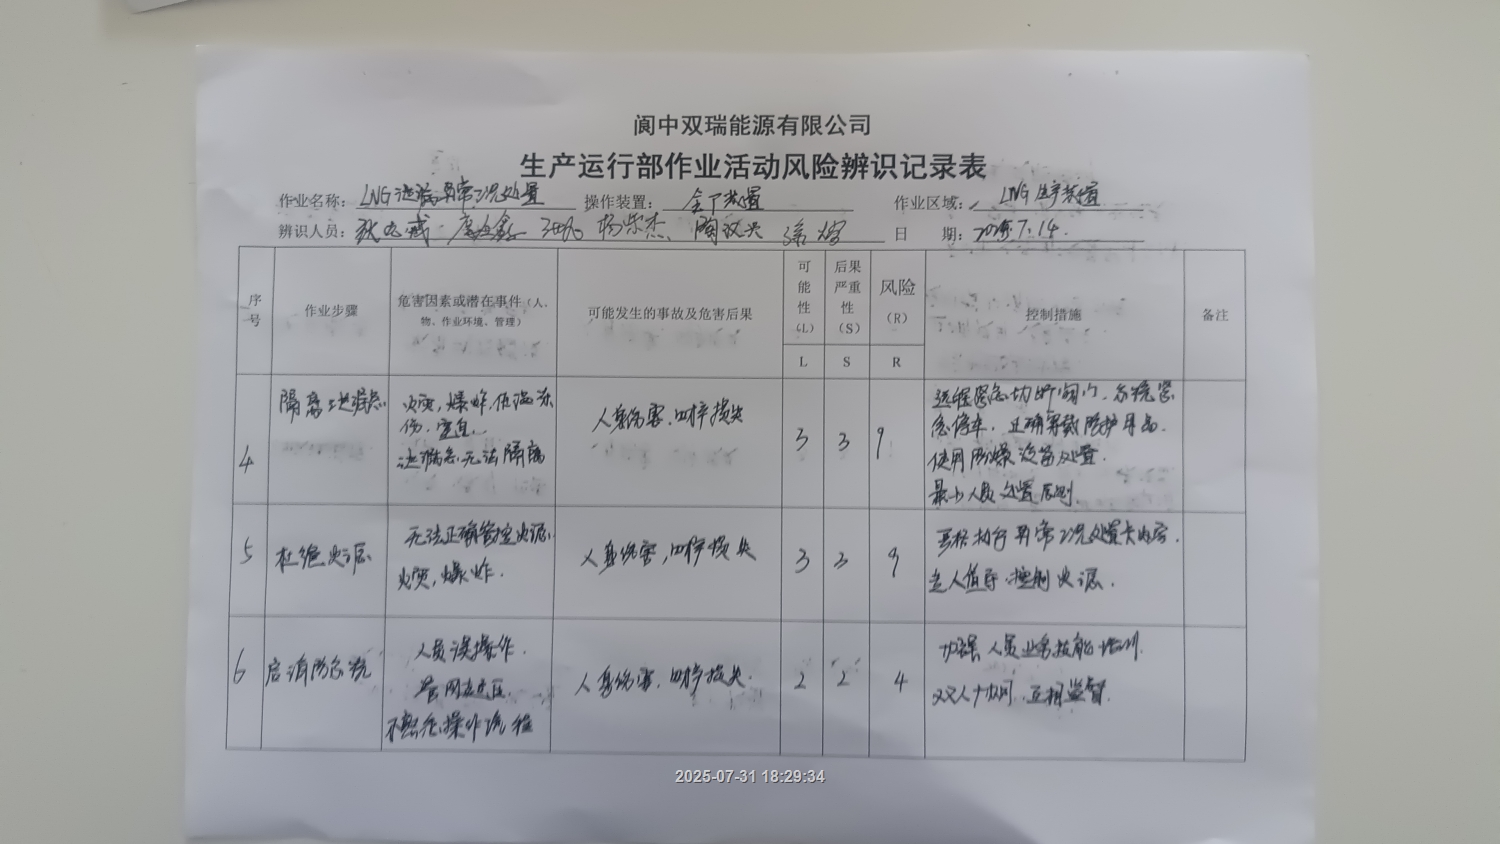 阆中双瑞能源有限公司
生产运行部作业活动风险辨识记录表
作业名称: LNG泄漏异常工况处置 操作装置: 全厂装置 作业区域: LNG生产装置
辨识人员: 杨荣杰 日 期: 2025.7.14.
序号 作业步骤 危害因素或潜在事件(人、物、作业环境、管理) 可能发生的事故及危害后果 可能性(L) 后果严重性(S) 风险(R) 控制措施 备注
L S R
4 隔离泄漏点 火灾,爆炸,低温冻伤,窒息. 泄漏点无法隔离 人身伤害,财产损失 3 3 9 远程紧急切断阀门,系统紧急停车,正确穿戴防护用品. 使用防爆设备处置. 最少人员处置原则
5 杜绝火源 无法正确管控火源. 火灾,爆炸. 人身伤害,财产损失 3 3 9 严格执行异常工况处置卡内容. 专人值守,控制火源.
6 启消防系统 人员误操作. 管网未进压. 不熟悉操作流程 人身伤害,财产损失. 2 2 4 加强人员业务技能培训. 双人协同,互相监督.
2025-07-31 18:29:34